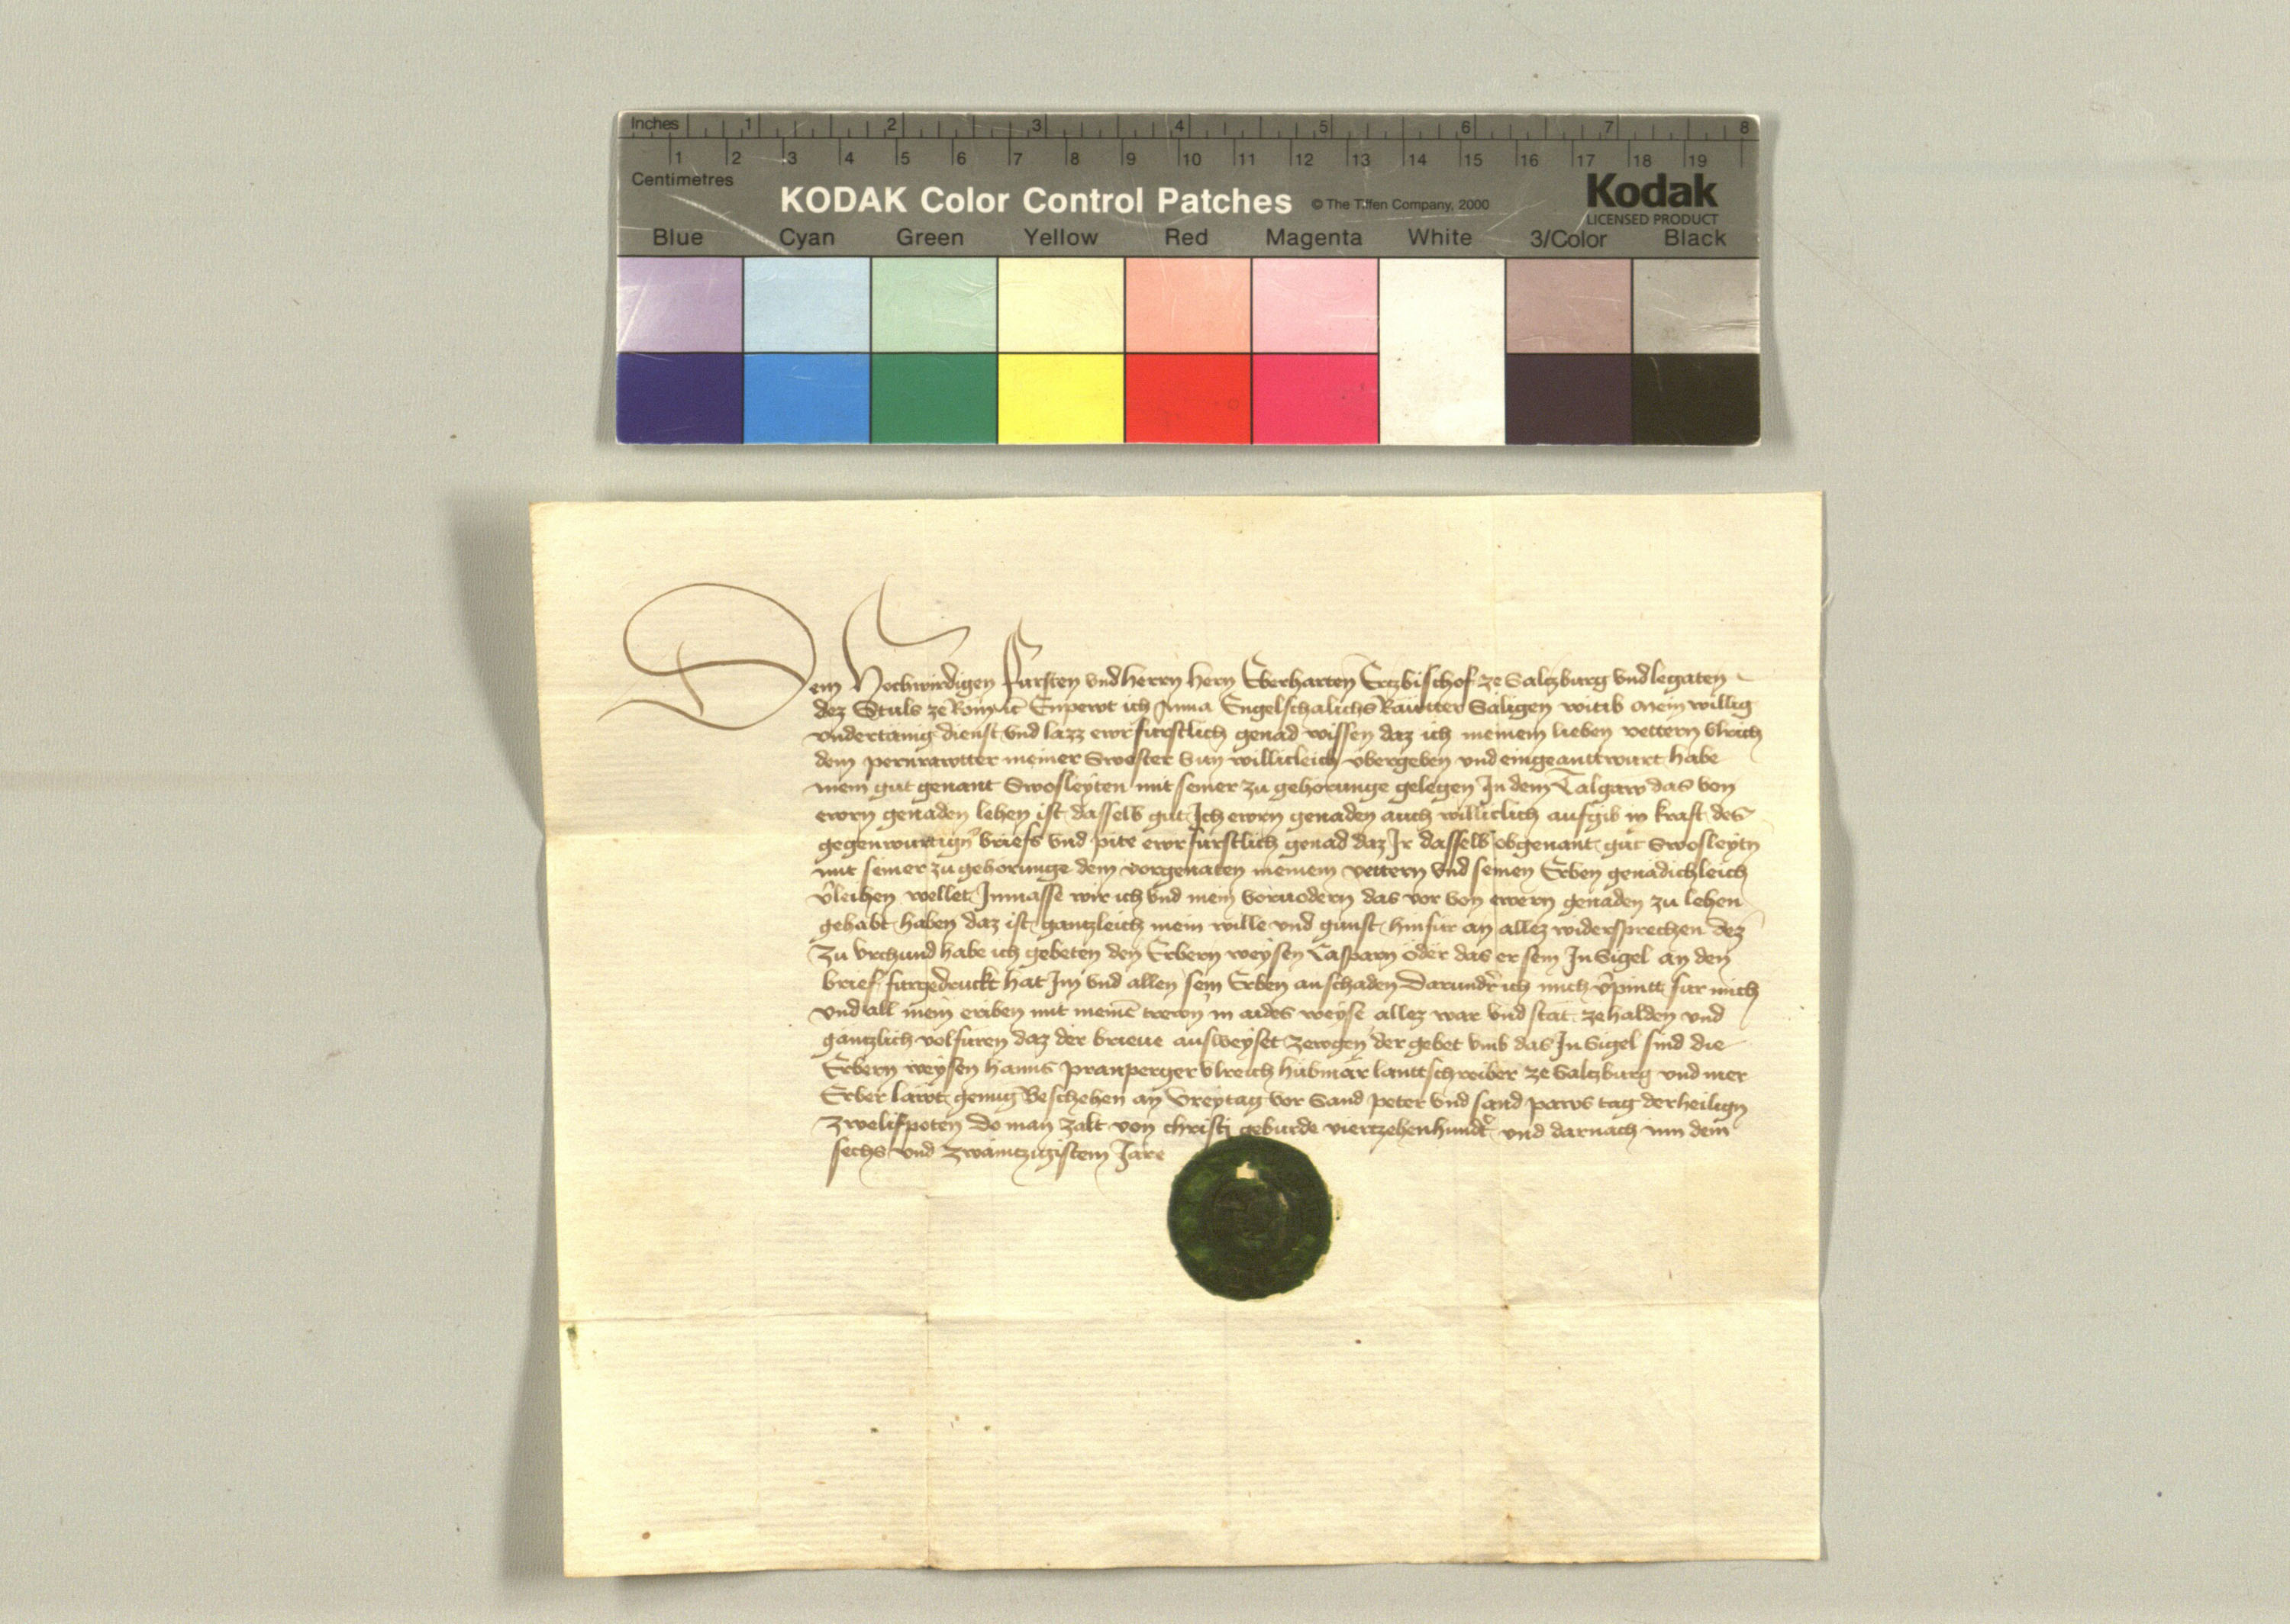 Inches 1 2 3 4 5 6 7 8
1 2 3 4 5 6 7 8 9 10 11 12 13 14 15 16 17 18 19
Centimetres
KODAK Color Control Patches © The Tiffen Company, 2000 Kodak
LICENSED PRODUCT
Blue Cyan Green Yellow Red Magenta White 3/Color Black
Dem Hochwirdigen Fursten vnd herrn hern Eberharten Ertzbischof ze Salczburg vnd legaten
dez Stuls ze Rom Enpewt ich Anna Engelschalichs Säligen witib mein willig
vndertanig dienst vnd lazz ewr furstlich genad wissen daz ich meinem lieben vettern vlrich
dem pernrawtter meiner Swester Sun willicleich vbergeben vnd eingeanttwurt habe
mein gut genant Swosleyten mit seiner zu gehorunge gelegen In dem Talgaw das von
ewrn genaden lehen ist dasselb gut Ich ewrn genaden auch willicleich aufgib in kraft des
gegenwurtign briefs vnd pite ewr furstlich genad daz Ir dasselb obgenant gut Swosleytn
mit seiner zu gehorunge dem vorgenaten meinem vettern vnd seinen Erben genädichleich
v̓leihen wellet Inmasse wir ich vnd mein voruodern das vor von ewern genaden zu lehen
gehabt haben daz ist gantzleich mein wille vnd gunst hinfur an allez widersprechen dez
zu vrchund habe ich gebeten den Erbern weysen Casparn öder das er sein In Sigel an den
brief furgedruckt hat Im vnd allen sein Erben an schaden Darundr̓ ich mich v̓pintt fur mich
vnd all mein eriben mit meinē trewn in aides weyse allez war vnd stät ze halden vnd
gäntzlich volfuren daz der brieue ausweyset zewgen der gebet vmb das In Sigel sind die
Erbern weysen hanns pranperger vlreich hubmär lanttschreiber ze Salczburg vnd mer
Erber läwt genug Beschehen an vreytag vor Sand peter vnd sand pawls tag der heilign
zwelifpoten do man zalt von christi geburde viertzehenhundt̓ vnd darnach inn dem
sechs vnd zwaintzigistem Jare